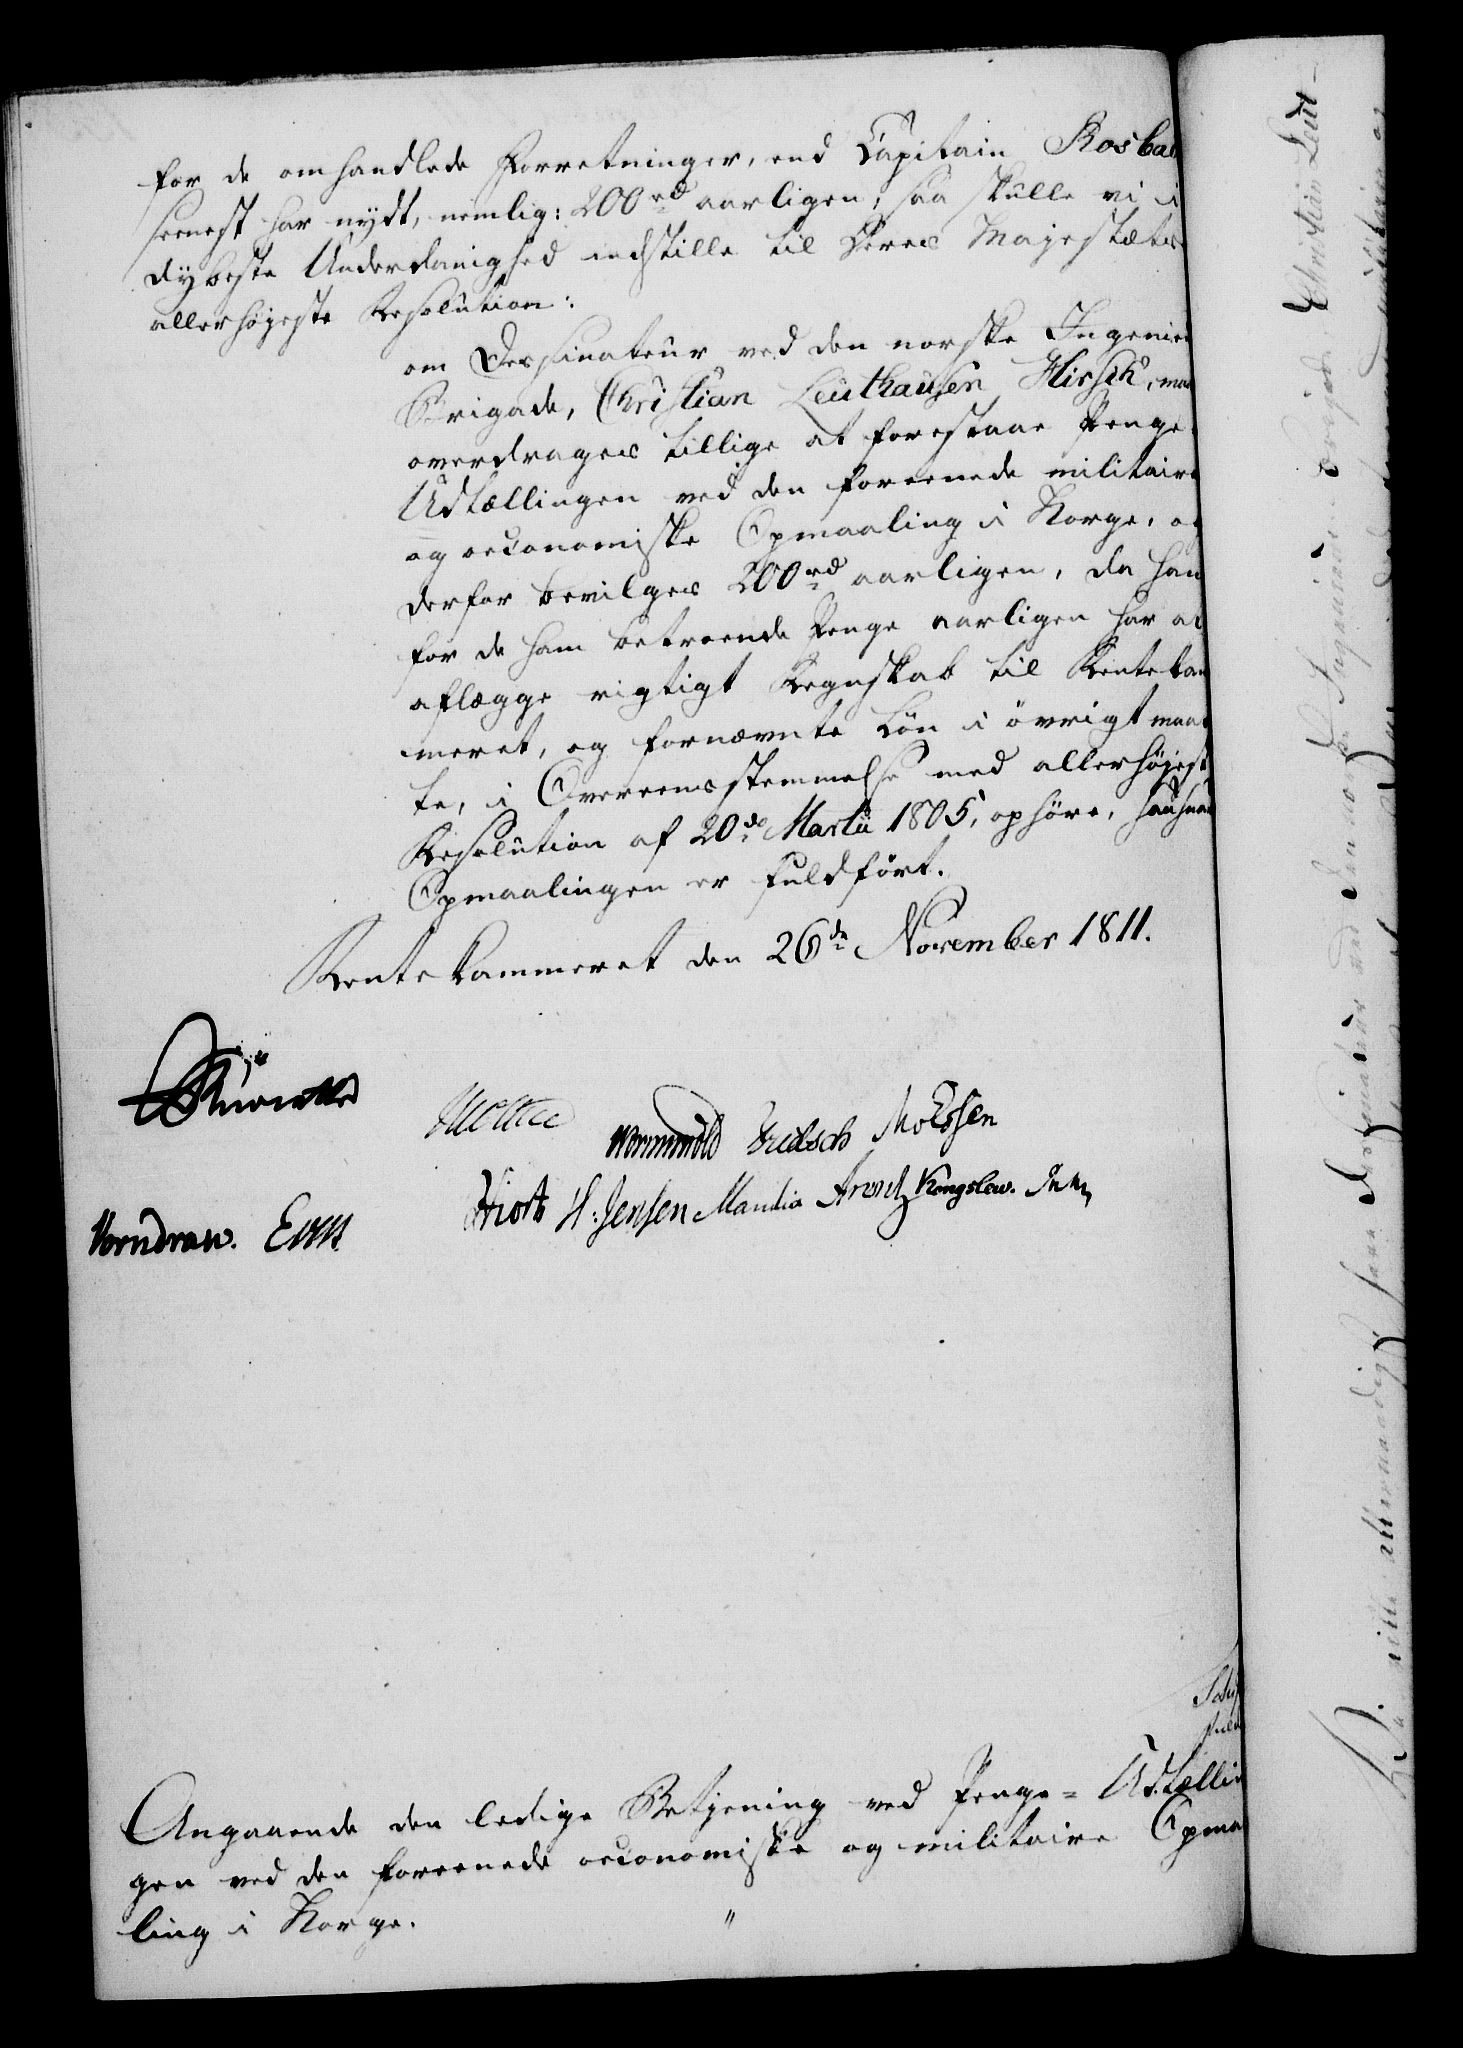 for de omhandlede Forretninger, end Capitain Rosba
seenest har nydt, nemlig: 200 rd aarligen; saa skulle vi i
dybeste Underdanighed indstille til Deres Majestæts
allerhøjeste Resolution:
om Dessinateur ved den norske Ingenieu
Brigade, Christian Leuthausen Hirsch, maa
overdrages tillige at forestaae Penge-
Udtællingen ved den foreenede militaire
og oeconomiske Opmaaling i Norge, og
derfor bevilges 200 rd aarligen, da han
for de ham betroende Penge aarligen har at
aflægge rigtigt Regnskab til Rentekam
meret, og fornævnte Løn i øvrigt maat
te, i Overeensstemmelse med allerhøjest
Resolution af 20de Martii 1805, ophøre, saasnar
Opmaalingen er fuldført.
Rentekammeret den 26de November 1811.
Moltke
Wormskiold Fridsch Moessen
Hiort H: Jensen Manthei Arentz Kongslew.
Worndran.
Angaaende den ledige Betjening ved Penge-Udtællin
gen ved den foreenede oeconomiske og militaire Opmaa
ling i Norge. "
Christian Leut-